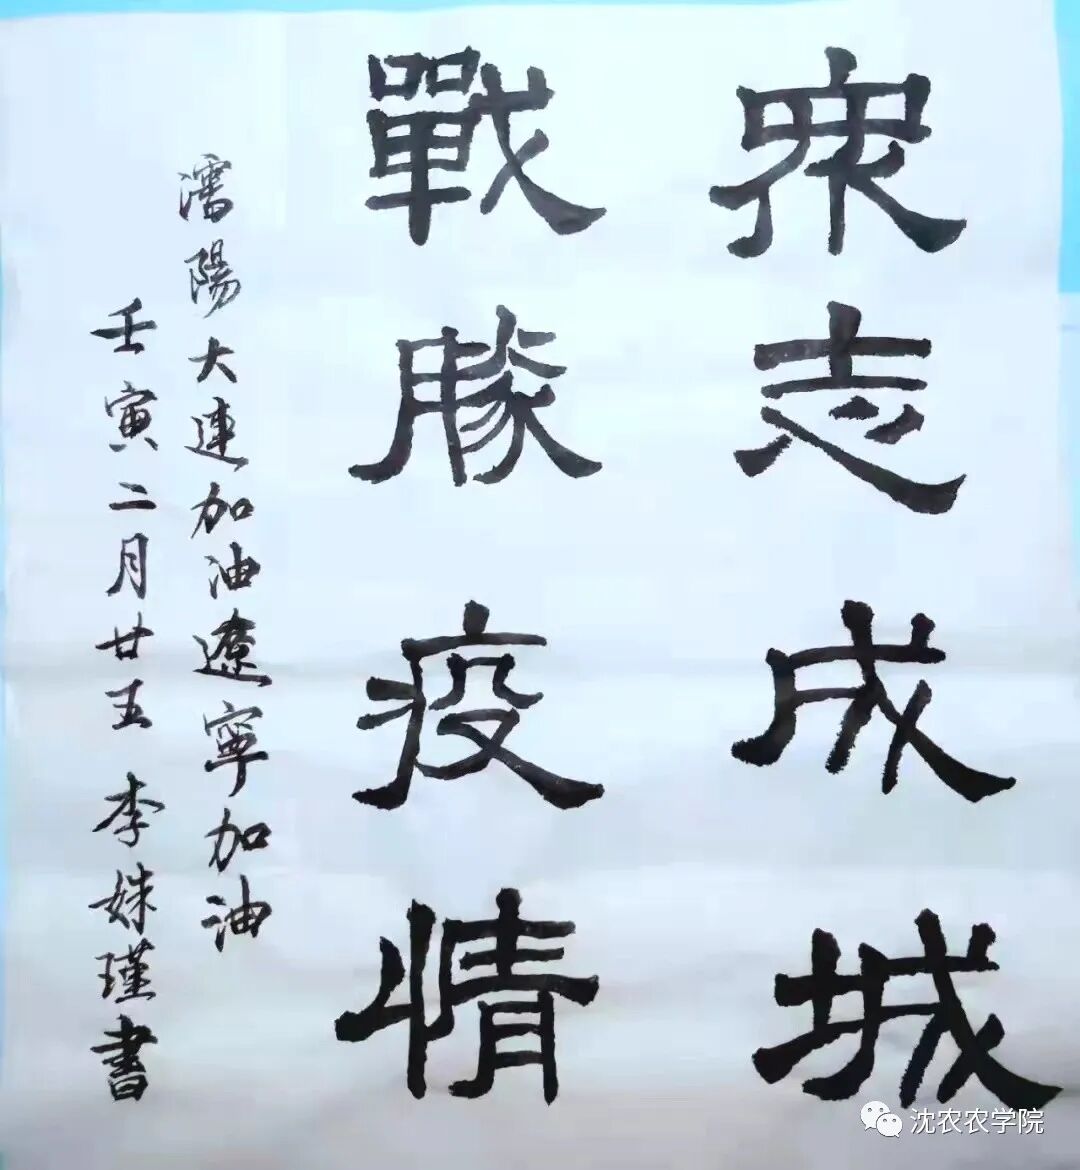 眾志成城
戰勝疫情
瀋陽大連加油遼寧加油
壬寅二月廿五 李姝瑾書
沈农农学院